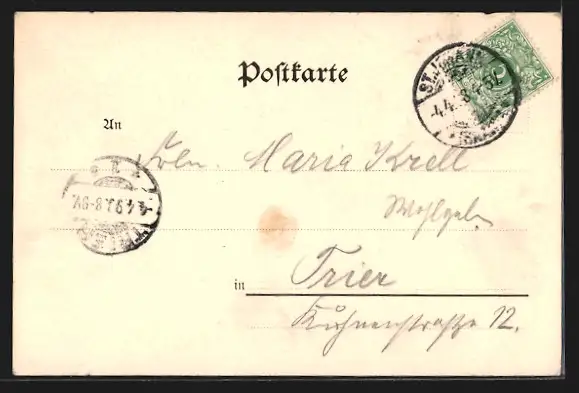 Postkarte
ST. JOHANN
4.4. 98
An
Frln. Maria Krell
Wohlgeb.
4.4.9 8-9V.
TRIER
in Trier
12.